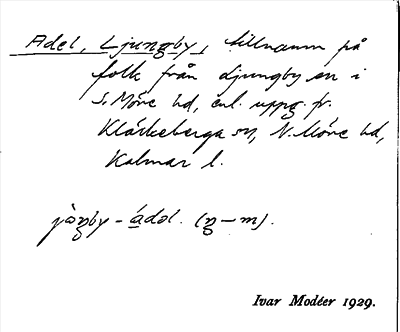 Adel, Ljungby, tillnamn på
folk från Ljungby sn i
S. Möre hd, enl. uppg. fr.
Kläckeberga sn, N. Möre hd,
Kalmar l.
jòŋby-ádəl. (ŋ–m).
Ivar Modéer 1929.